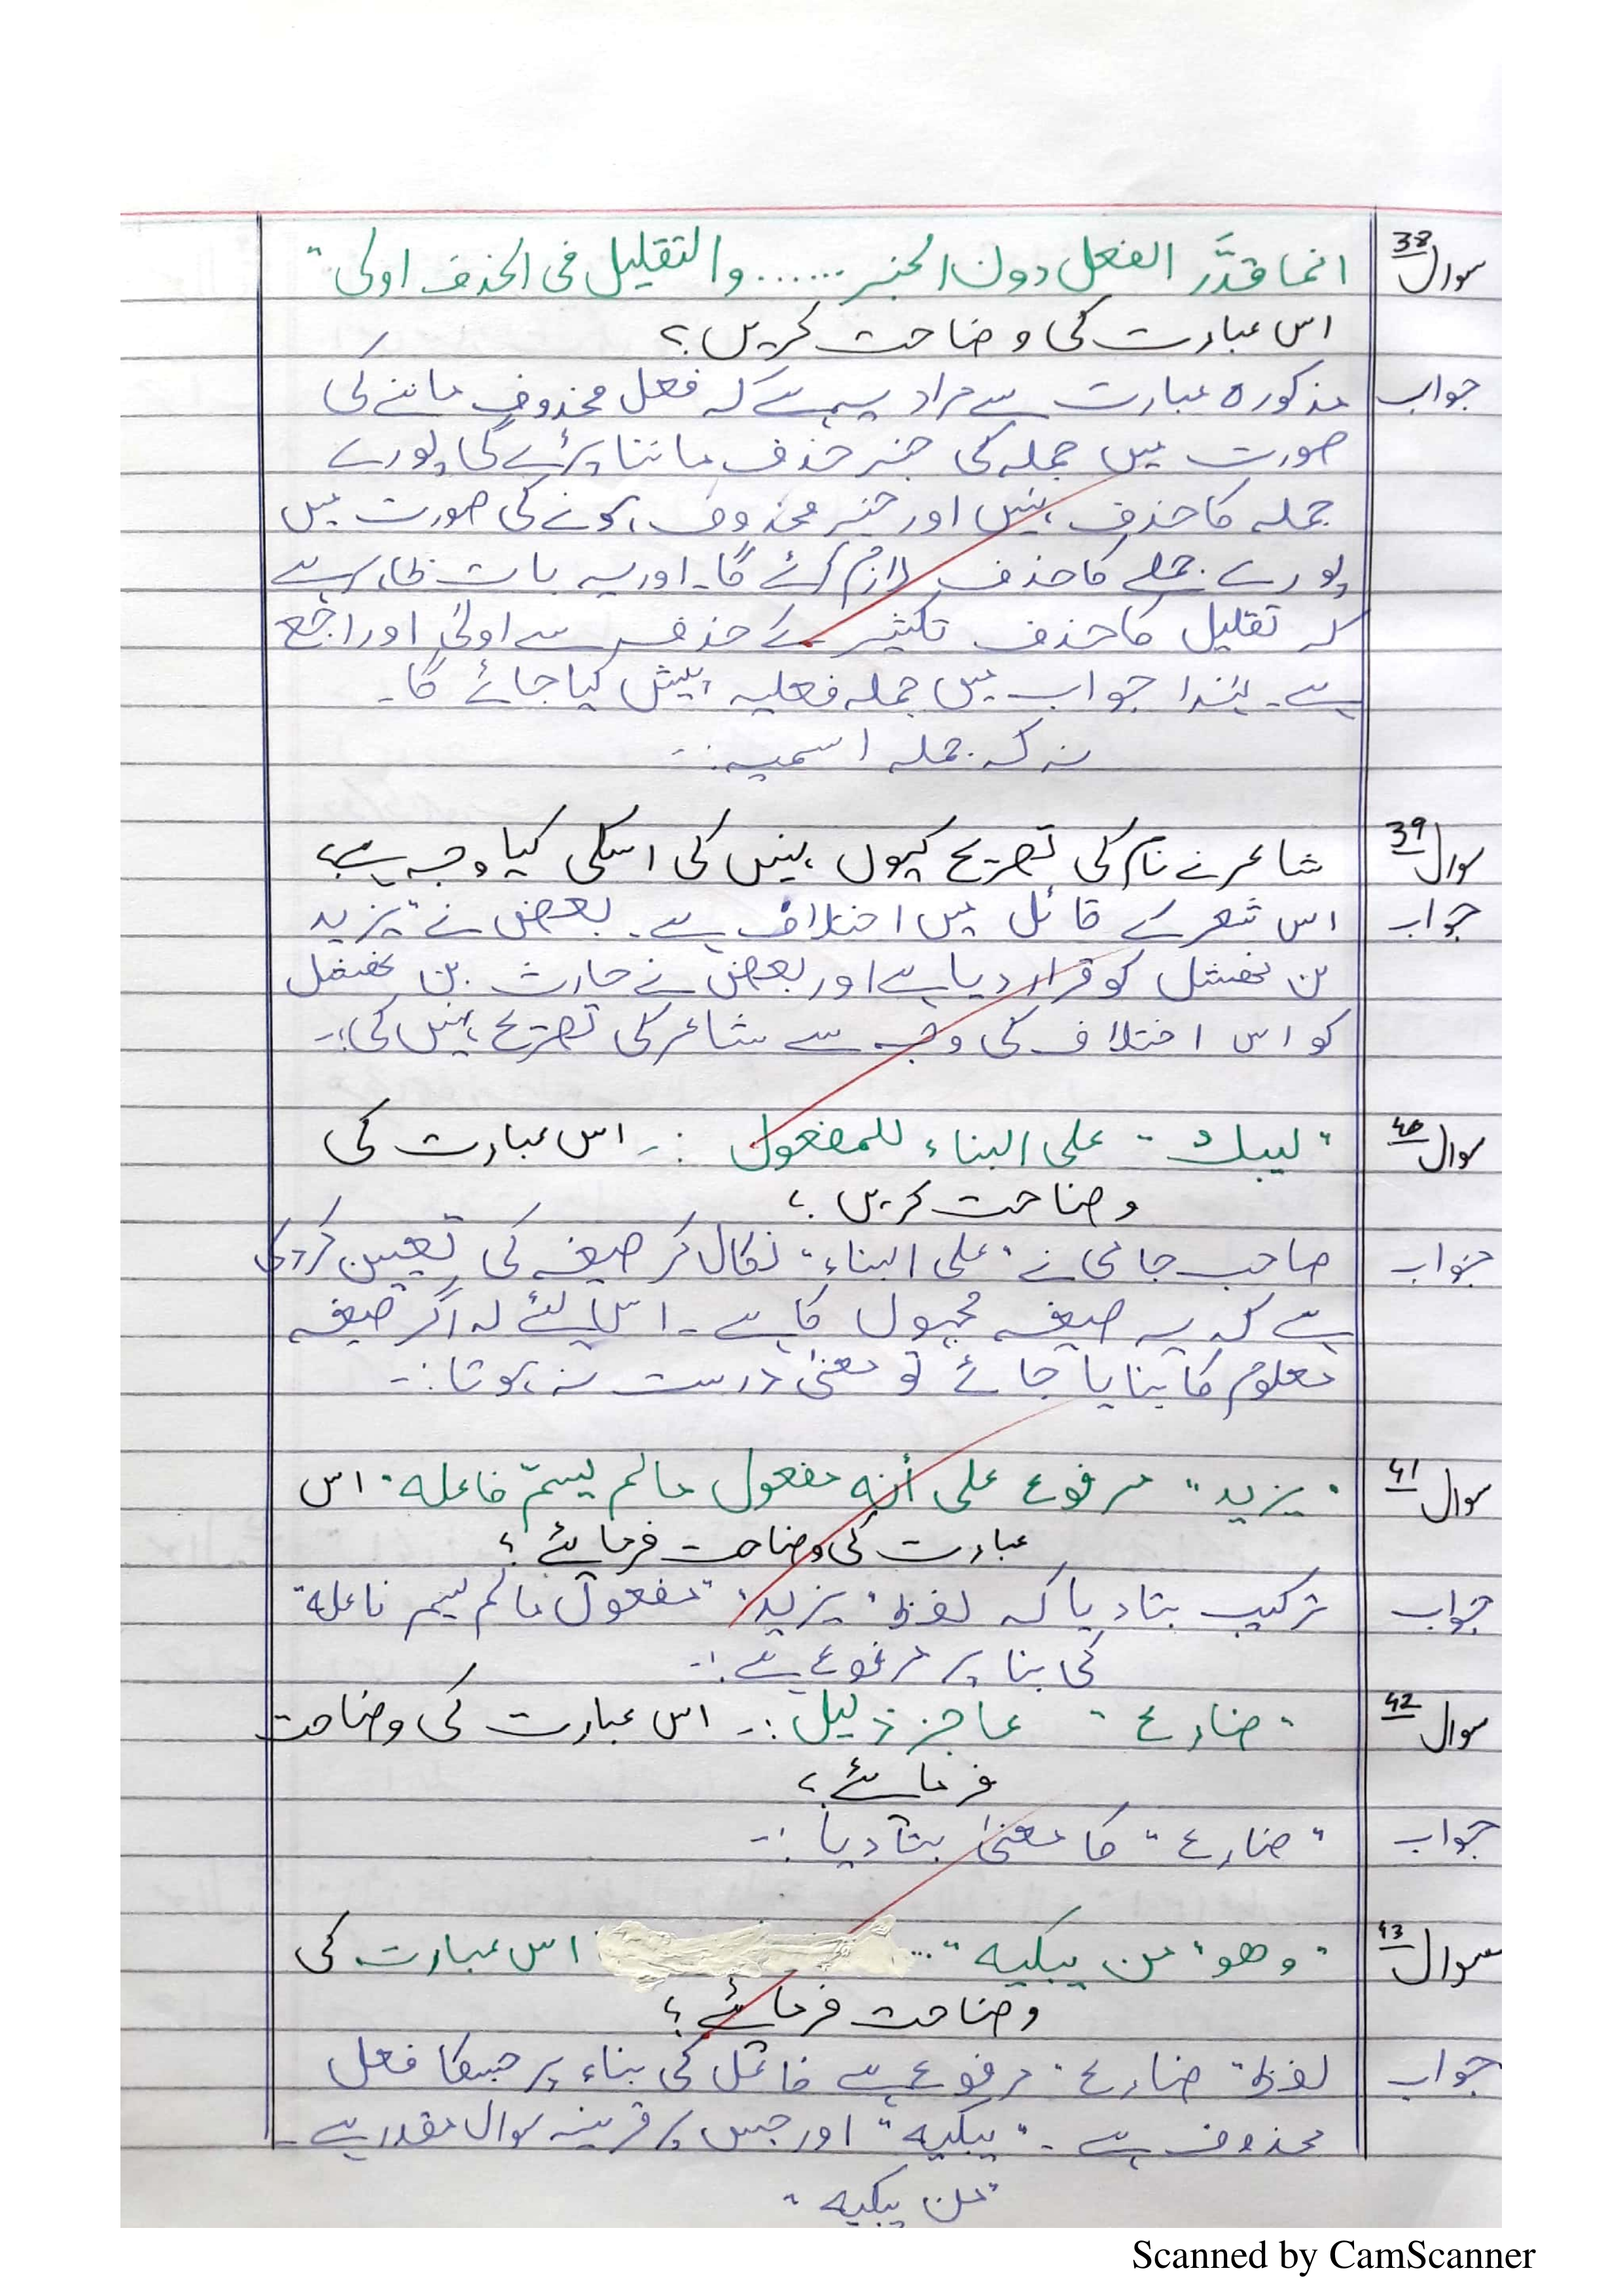 سوال 38 انما قدَّر الفعل دون الخبر ...... والتقليل فی الحذف اولی"
اس عبارت کی وضاحت کریں؟
جواب مذکورہ عبارت سے مراد یہ ہے کہ فعل محذوف ماننے کی
صورت میں جملہ کی جز حذف ماننا پڑے گا پورے
جملہ کا حذف نہیں اور خبر محذوف ہونے کی صورت میں
پورے جملے کا حذف لازم آئے گا۔ اور یہ بات ظاہر ہے
کہ تقلیل کا حذف تکثیر کے حذف سے اولیٰ اور راجع
ہے۔ لہٰذا جواب میں جملہ فعلیہ پیش کیا جائے گا۔
نہ کہ جملہ اسمیہ :۔
سوال 39 شاعر نے نام کی تصریح کیوں نہیں کی اسکی کیا وجہ ہے؟
جواب اس شعر کے قائل میں اختلاف ہے۔ بعض نے یزید
بن نھشل کو قرار دیا ہے اور بعض نے حارث بن نھشل
کو اس اختلاف کی وجہ سے شاعر کی تصریح نہیں کی :۔
سوال 40 "لیبك" علی البناء للمفعول :۔ اس عبارت کی
وضاحت کریں؟
جواب صاحب جامی نے "علی البناء" نکال کر صیغہ کی تعیین کردی
ہے کہ یہ صیغہ مجہول کا ہے۔ اس لئے کہ اگر صیغہ
معلوم کا بنایا جائے تو معنیٰ درست نہ ہوتا :۔
سوال 41 "یزید" مرفوع علی أنه مفعول مالم یسمّ فاعله" اس
عبارت کی وضاحت فرمائے؟
جواب ترکیب بتا دیا کہ لفظ "یزید" "مفعول مالم یسم فاعله"
کی بنا پر مرفوع ہے :۔
سوال 42 "ضارع" عاجز ذلیل :۔ اس عبارت کی وضاحت
فرمائے؟
جواب "ضارع" کا معنیٰ بتا دیا :۔
سوال 43 "وهو" من یبکیه" ... اس عبارت کی
وضاحت فرمائے؟
جواب لفظ "ضارع" مرفوع ہے فاعل کی بناء پر جسکا فعل
محذوف ہے۔ "یبکیه" اور جس پر قرینہ سوال مقدر ہے۔
"من یبکیه"
Scanned by CamScanner